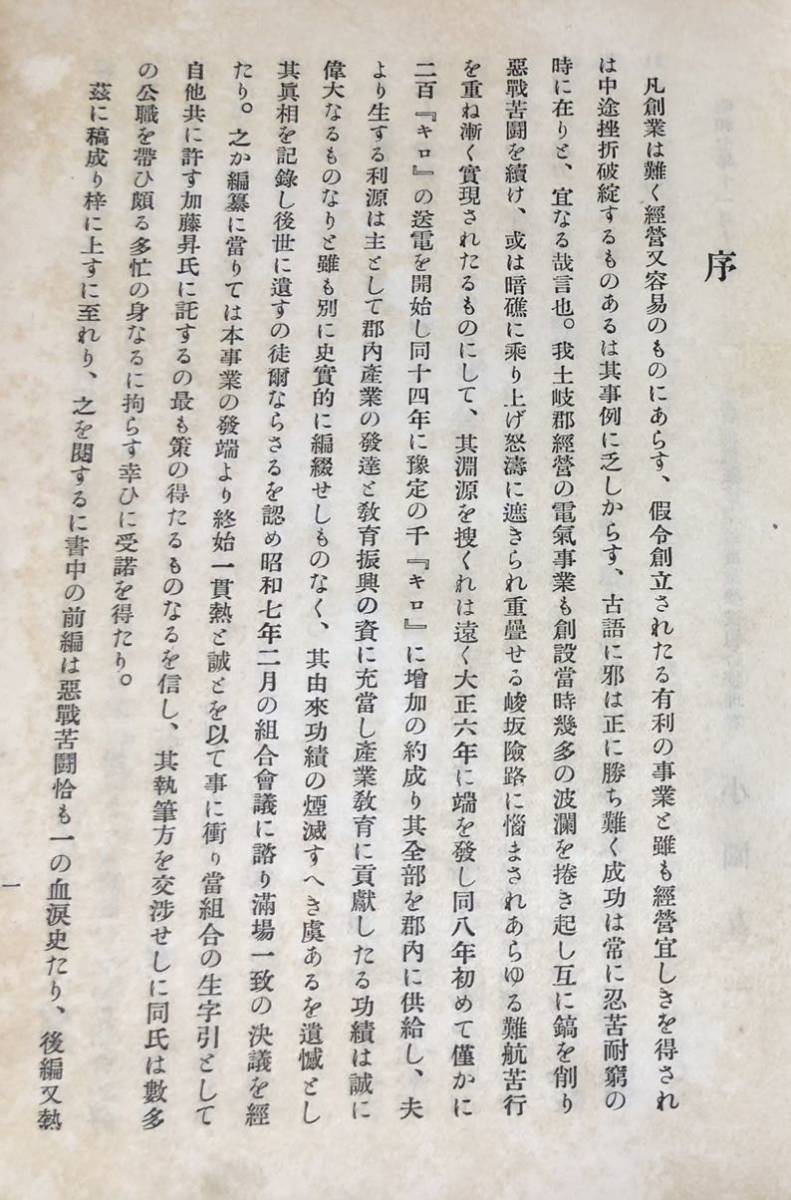 序
凡創業は難く經營又容易のものにあらす、假令創立されたる有利の事業と雖も經營宜しきを得され
は中途挫折破綻するものあるは其事例に乏しからす、古語に邪は正に勝ち難く成功は常に忍苦耐窮の
時に在りと、宜なる哉言也。我土岐郡經營の電氣事業も創設當時幾多の波瀾を捲き起し互に鎬を削り
惡戰苦鬪を續け、或は暗礁に乘り上げ怒濤に遮きられ重疊せる峻坂險路に惱まされあらゆる難航苦行
を重ね漸く實現されたるものにして、其淵源を搜くれは遠く大正六年に端を發し同八年初めて僅かに
二百『キロ』の送電を開始し同十四年に豫定の千『キロ』に增加の約成り其全部を郡內に供給し、夫
より生する利源は主として郡內產業の發達と敎育振興の資に充當し產業敎育に貢獻したる功績は誠に
偉大なるものなりと雖も別に史實的に編綴せしものなく、其由來功績の煙滅すへき虞あるを遺憾とし
其眞相を記錄し後世に遺すの徒爾ならさるを認め昭和七年二月の組合會議に諮り滿場一致の決議を經
たり。之か編纂に當りては本事業の發端より終始一貫熱と誠とを以て事に衝り當組合の生字引として
自他共に許す加藤昇氏に託するの最も策の得たるものなるを信し、其執筆方を交涉せしに同氏は數多
の公職を帶ひ頗る多忙の身なるに拘らす幸ひに受諾を得たり。
茲に稿成り梓に上すに至れり、之を閱するに書中の前編は惡戰苦鬪恰も一の血淚史たり、後編又熱
一